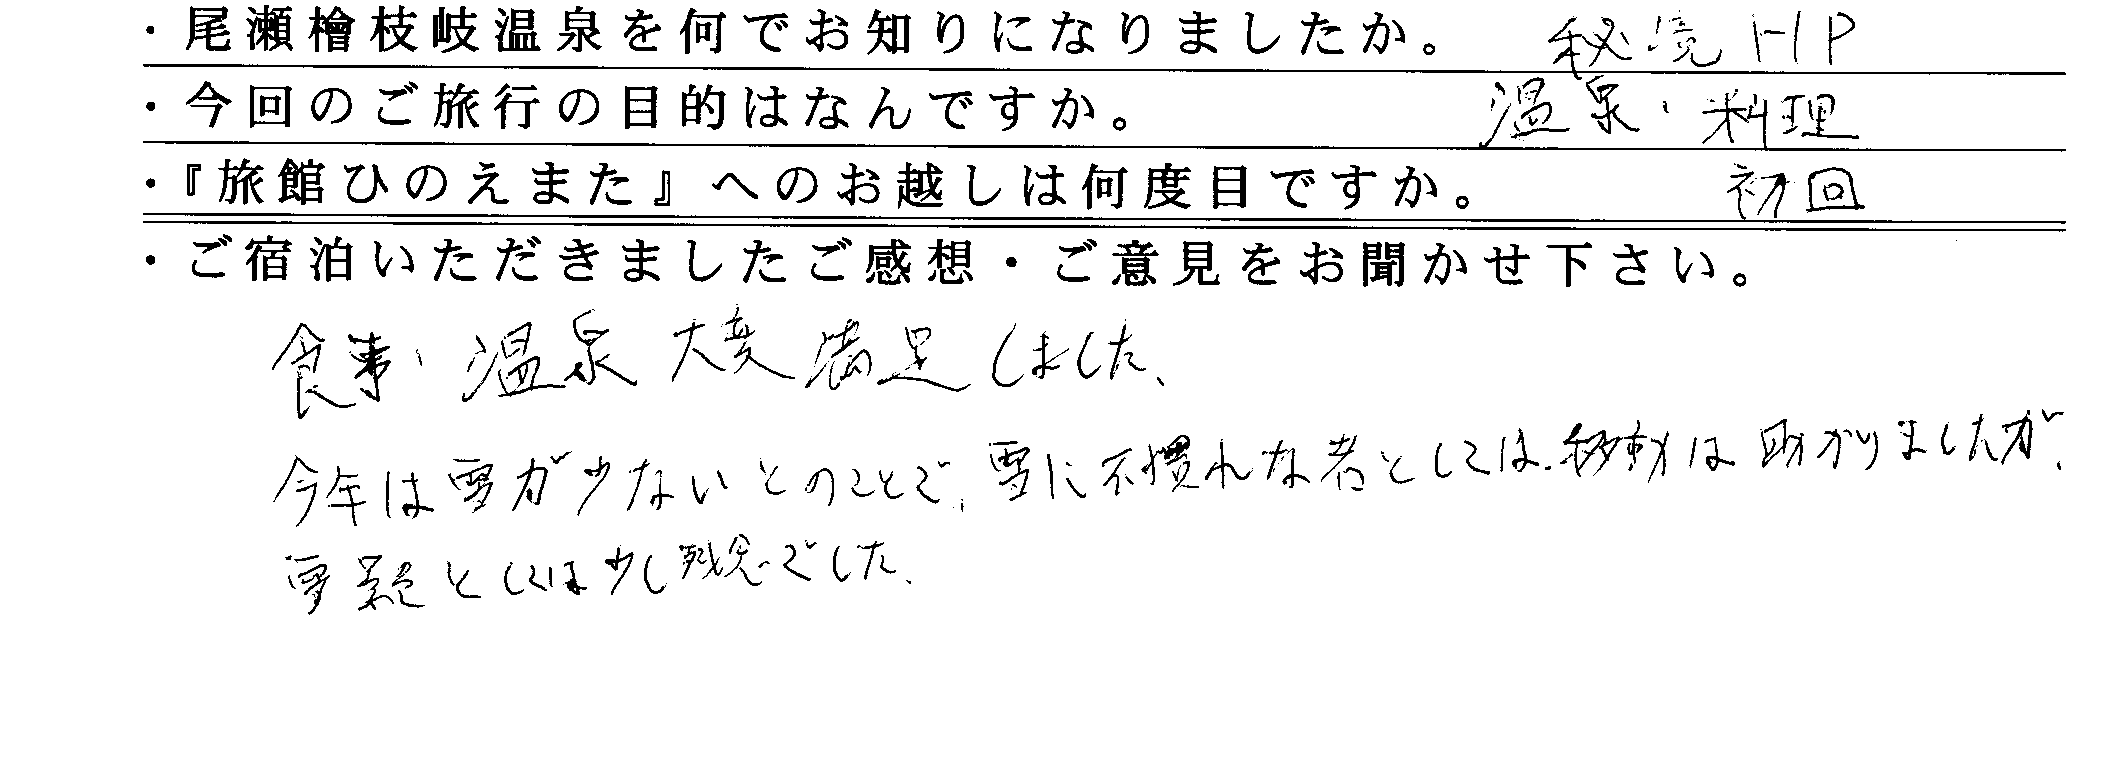 ・尾瀬檜枝岐温泉を何でお知りになりましたか。 秘境HP
・今回のご旅行の目的はなんですか。 温泉・料理
・『旅館ひのえまた』へのお越しは何度目ですか。 初回
・ご宿泊いただきましたご感想・ご意見をお聞かせ下さい。
食事・温泉大変満足しました、
今年は雪が少ないとのことで、雪に不慣れな者としては、移動は助かりましたが、
雪景色としては少し残念でした、